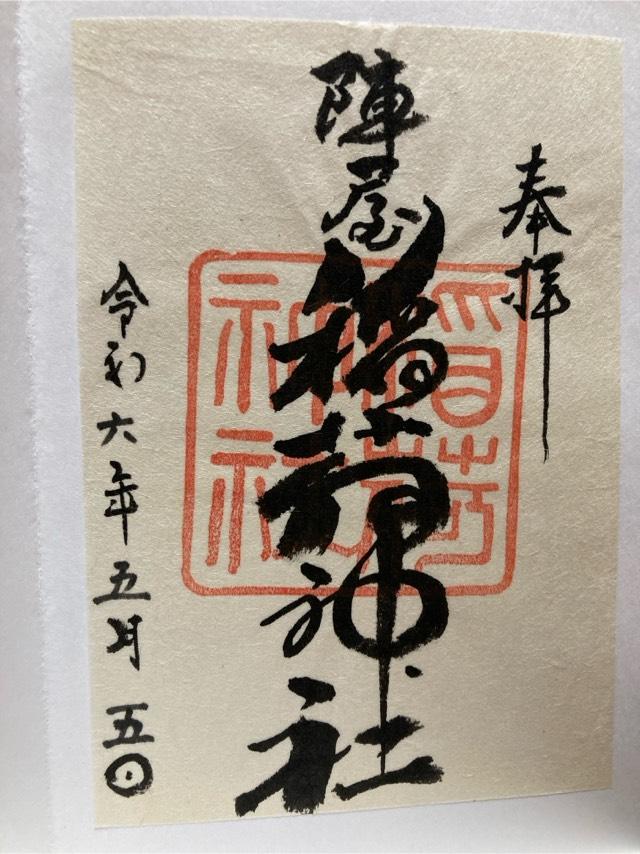 奉拝
陣屋稲荷神社
令和六年五月五日